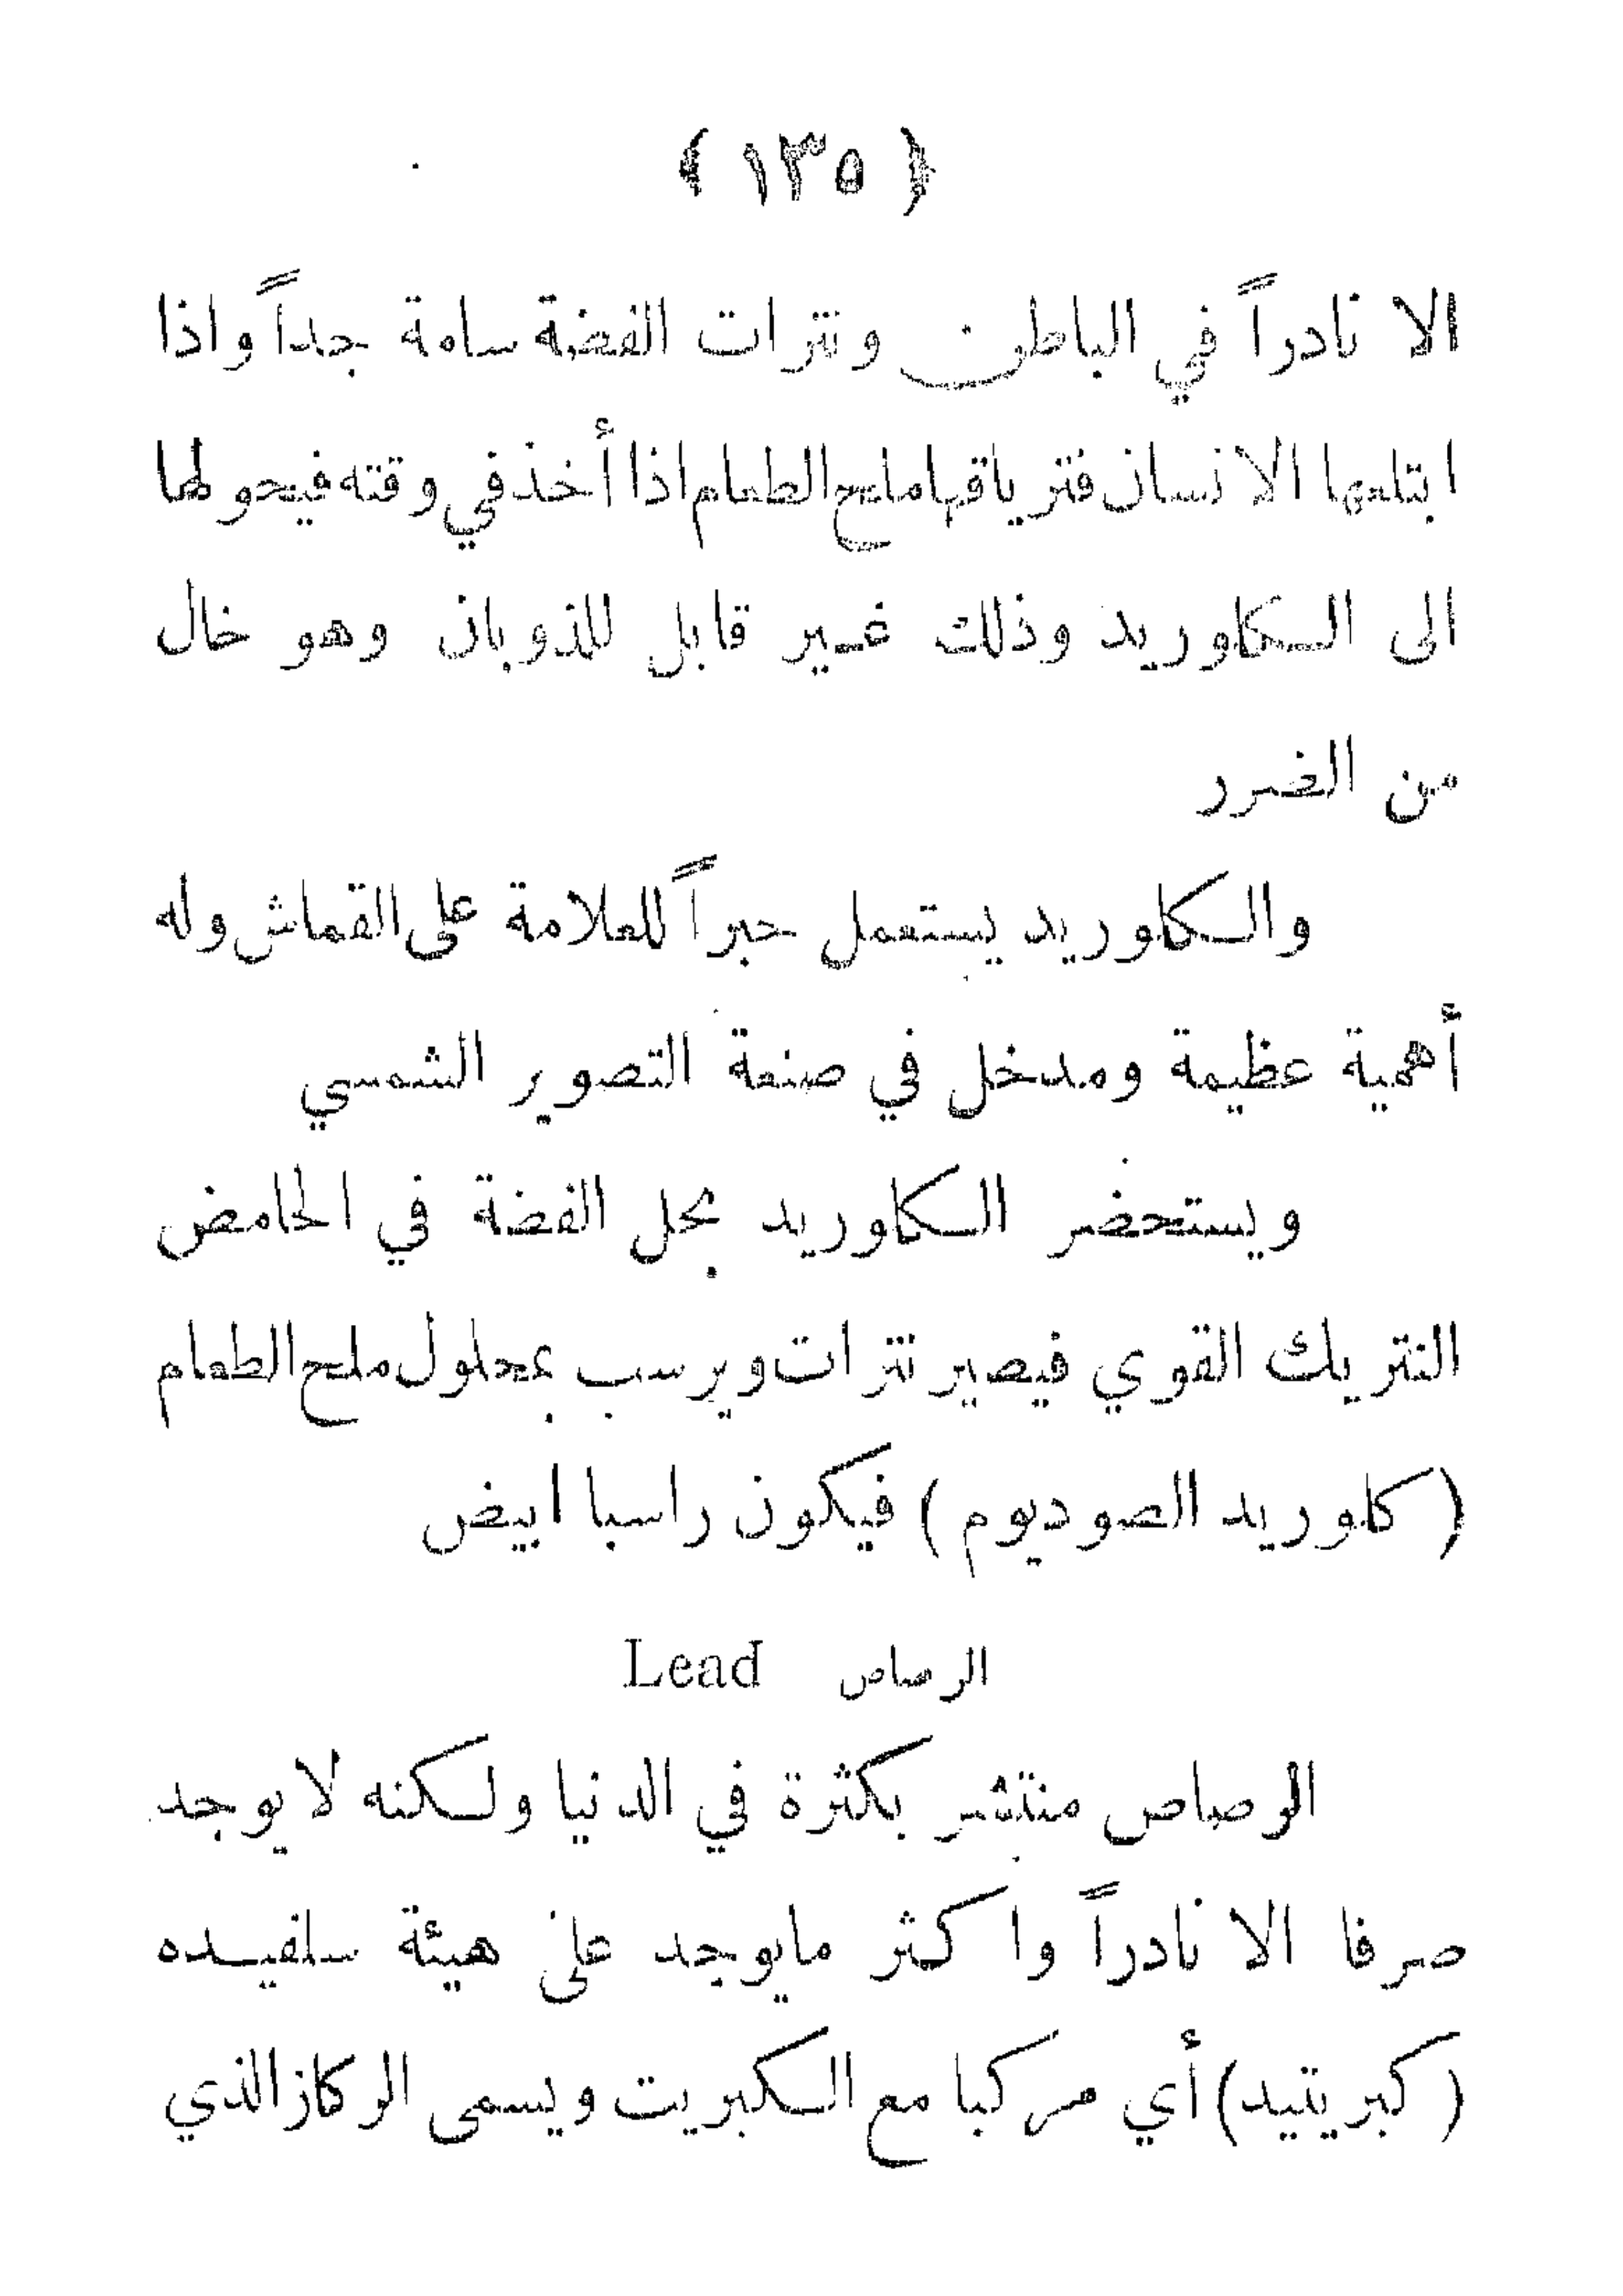 ﴿ ١٣٥ ﴾
الا نادراً في الباطن ونترات الفضة سامة جداً واذا
ابتلعها الانسان فترياقها ملح الطعام اذا أخذ في وقته فيحولها
الى الكلوريد وذلك غير قابل للذوبان وهو خال
من الضرر
والكلوريد يستعمل حبراً للعلامة على القماش وله
أهمية عظيمة ومدخل في صنعة التصوير الشمسي
ويستحضر الكلوريد بحل الفضة في الحامض
النتريك القوي فيصير نترات ويرسب بمحلول ملح الطعام
( كلوريد الصوديوم ) فيكون راسبا ابيض
الرصاص Lead
الرصاص منتشر بكثرة في الدنيا ولكنه لا يوجد
صرفا الا نادراً واكثر مايوجد على هيئة سلفيده
( كبريتيد ) أي مركبا مع الكبريت ويسمى الركاز الذي